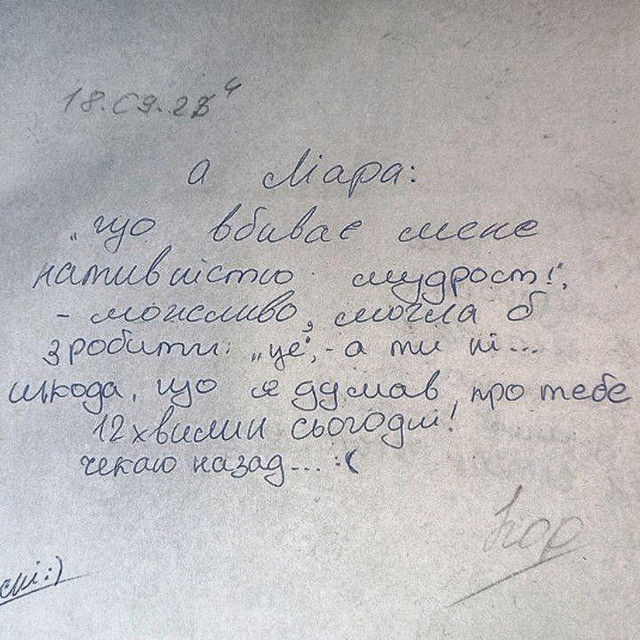 18.09.2
а Мара:
"що вбиває мене
наживністю мудрост!"
- можливо, могла б
зробити: "це", - а ти ні...
шкода, що я думав про тебе
12 хвилин сьогодні!
чекаю назад... :(